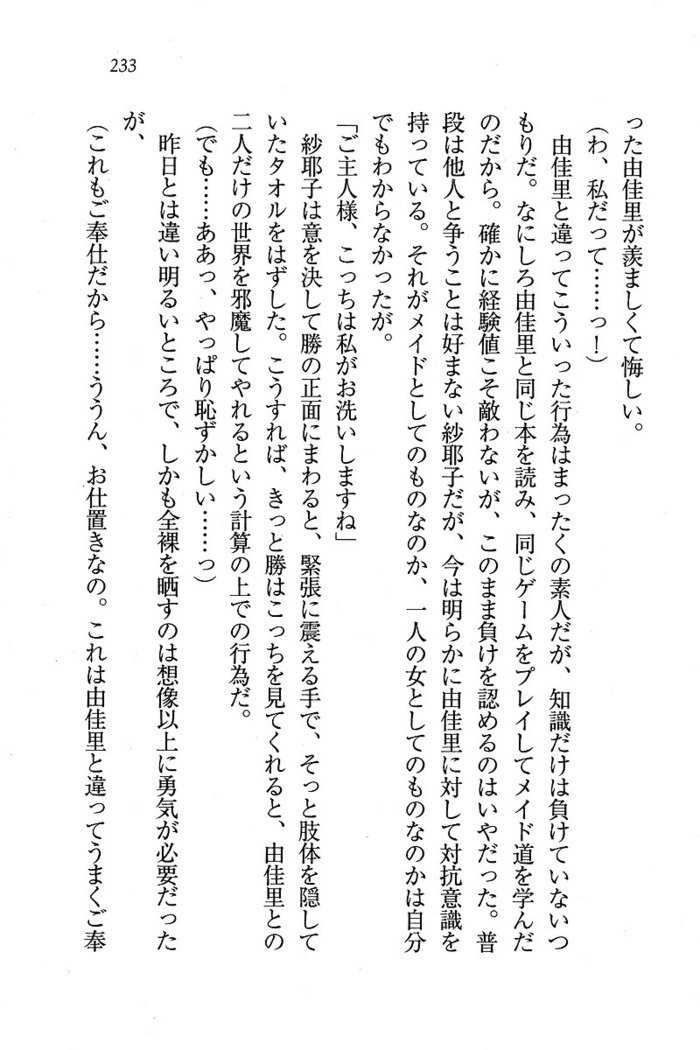 233
った由佳里が羨ましくて悔しい。
(わ、私だって……っ！)
由佳里と違ってこういった行為はまったくの素人だが、知識だけは負けていないつ
もりだ。なにしろ由佳里と同じ本を読み、同じゲームをプレイしてメイド道を学んだ
のだから。確かに経験値こそ敵わないが、このまま負けを認めるのはいやだった。普
段は他人と争うことは好まない紗耶子だが、今は明らかに由佳里に対して対抗意識を
持っている。それがメイドとしてのものなのか、一人の女としてのものなのかは自分
でもわからなかったが。
「ご主人様、こっちは私がお洗いしますね」
紗耶子は意を決して勝の正面にまわると、緊張に震える手で、そっと肢体を隠して
いたタオルをはずした。こうすれば、きっと勝はこっちを見てくれると、由佳里との
二人だけの世界を邪魔してやれるという計算の上での行為だ。
(でも……ああっ、やっぱり恥ずかしい……っ)
昨日とは違い明るいところで、しかも全裸を晒すのは想像以上に勇気が必要だった
が、
(これもご奉仕だから……ううん、お仕置きなの。これは由佳里と違ってうまくご奉